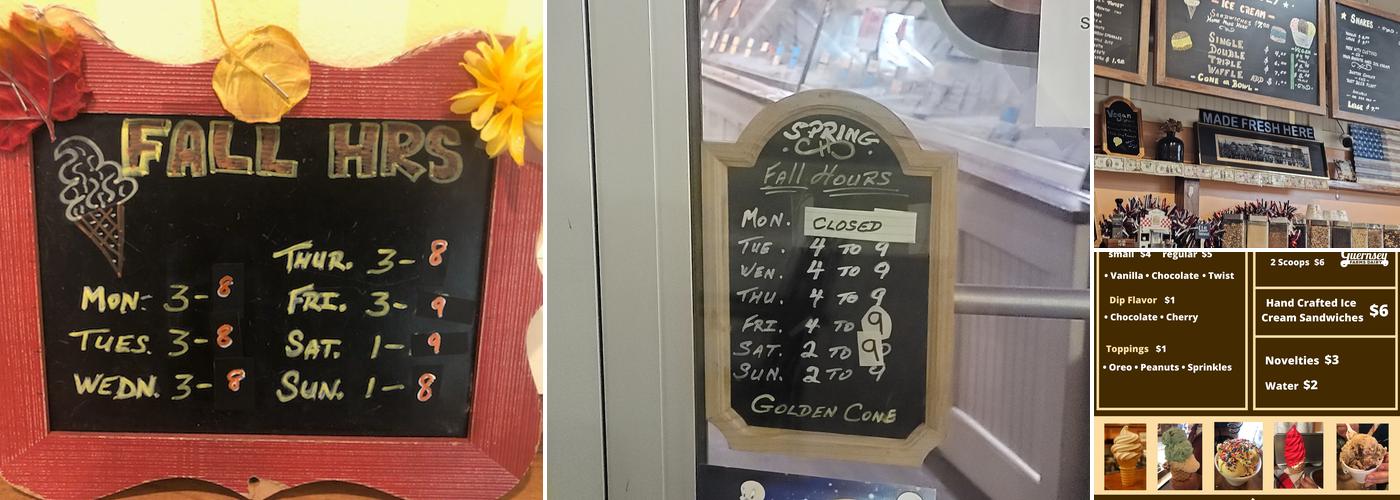 FALL HRS
MON: 3-8
TUES. 3-8
WEDN. 3-8
THUR. 3-8
FRI. 3-9
SAT. 1-9
SUN. 1-8
SPRING
Fall HOURS
MON. CLOSED
TUE. 4 TO 9
WEN. 4 TO 9
THU. 4 TO 9
FRI. 4 TO 9
SAT. 2 TO 9
SUN. 2 TO 9
GOLDEN CONE
S
ICE CREAM
SANDWICHES
SINGLE
DOUBLE
TRIPLE
WAFFLE ADD
-CONE OR BOWL-
SHAKES
Vegan
MADE FRESH HERE
small $4 regular $5
• Vanilla • Chocolate • Twist
Dip Flavor $1
• Chocolate • Cherry
Toppings $1
• Oreo • Peanuts • Sprinkles
Guernsey
2 Scoops $6
Hand Crafted Ice
Cream Sandwiches $6
Novelties $3
Water $2